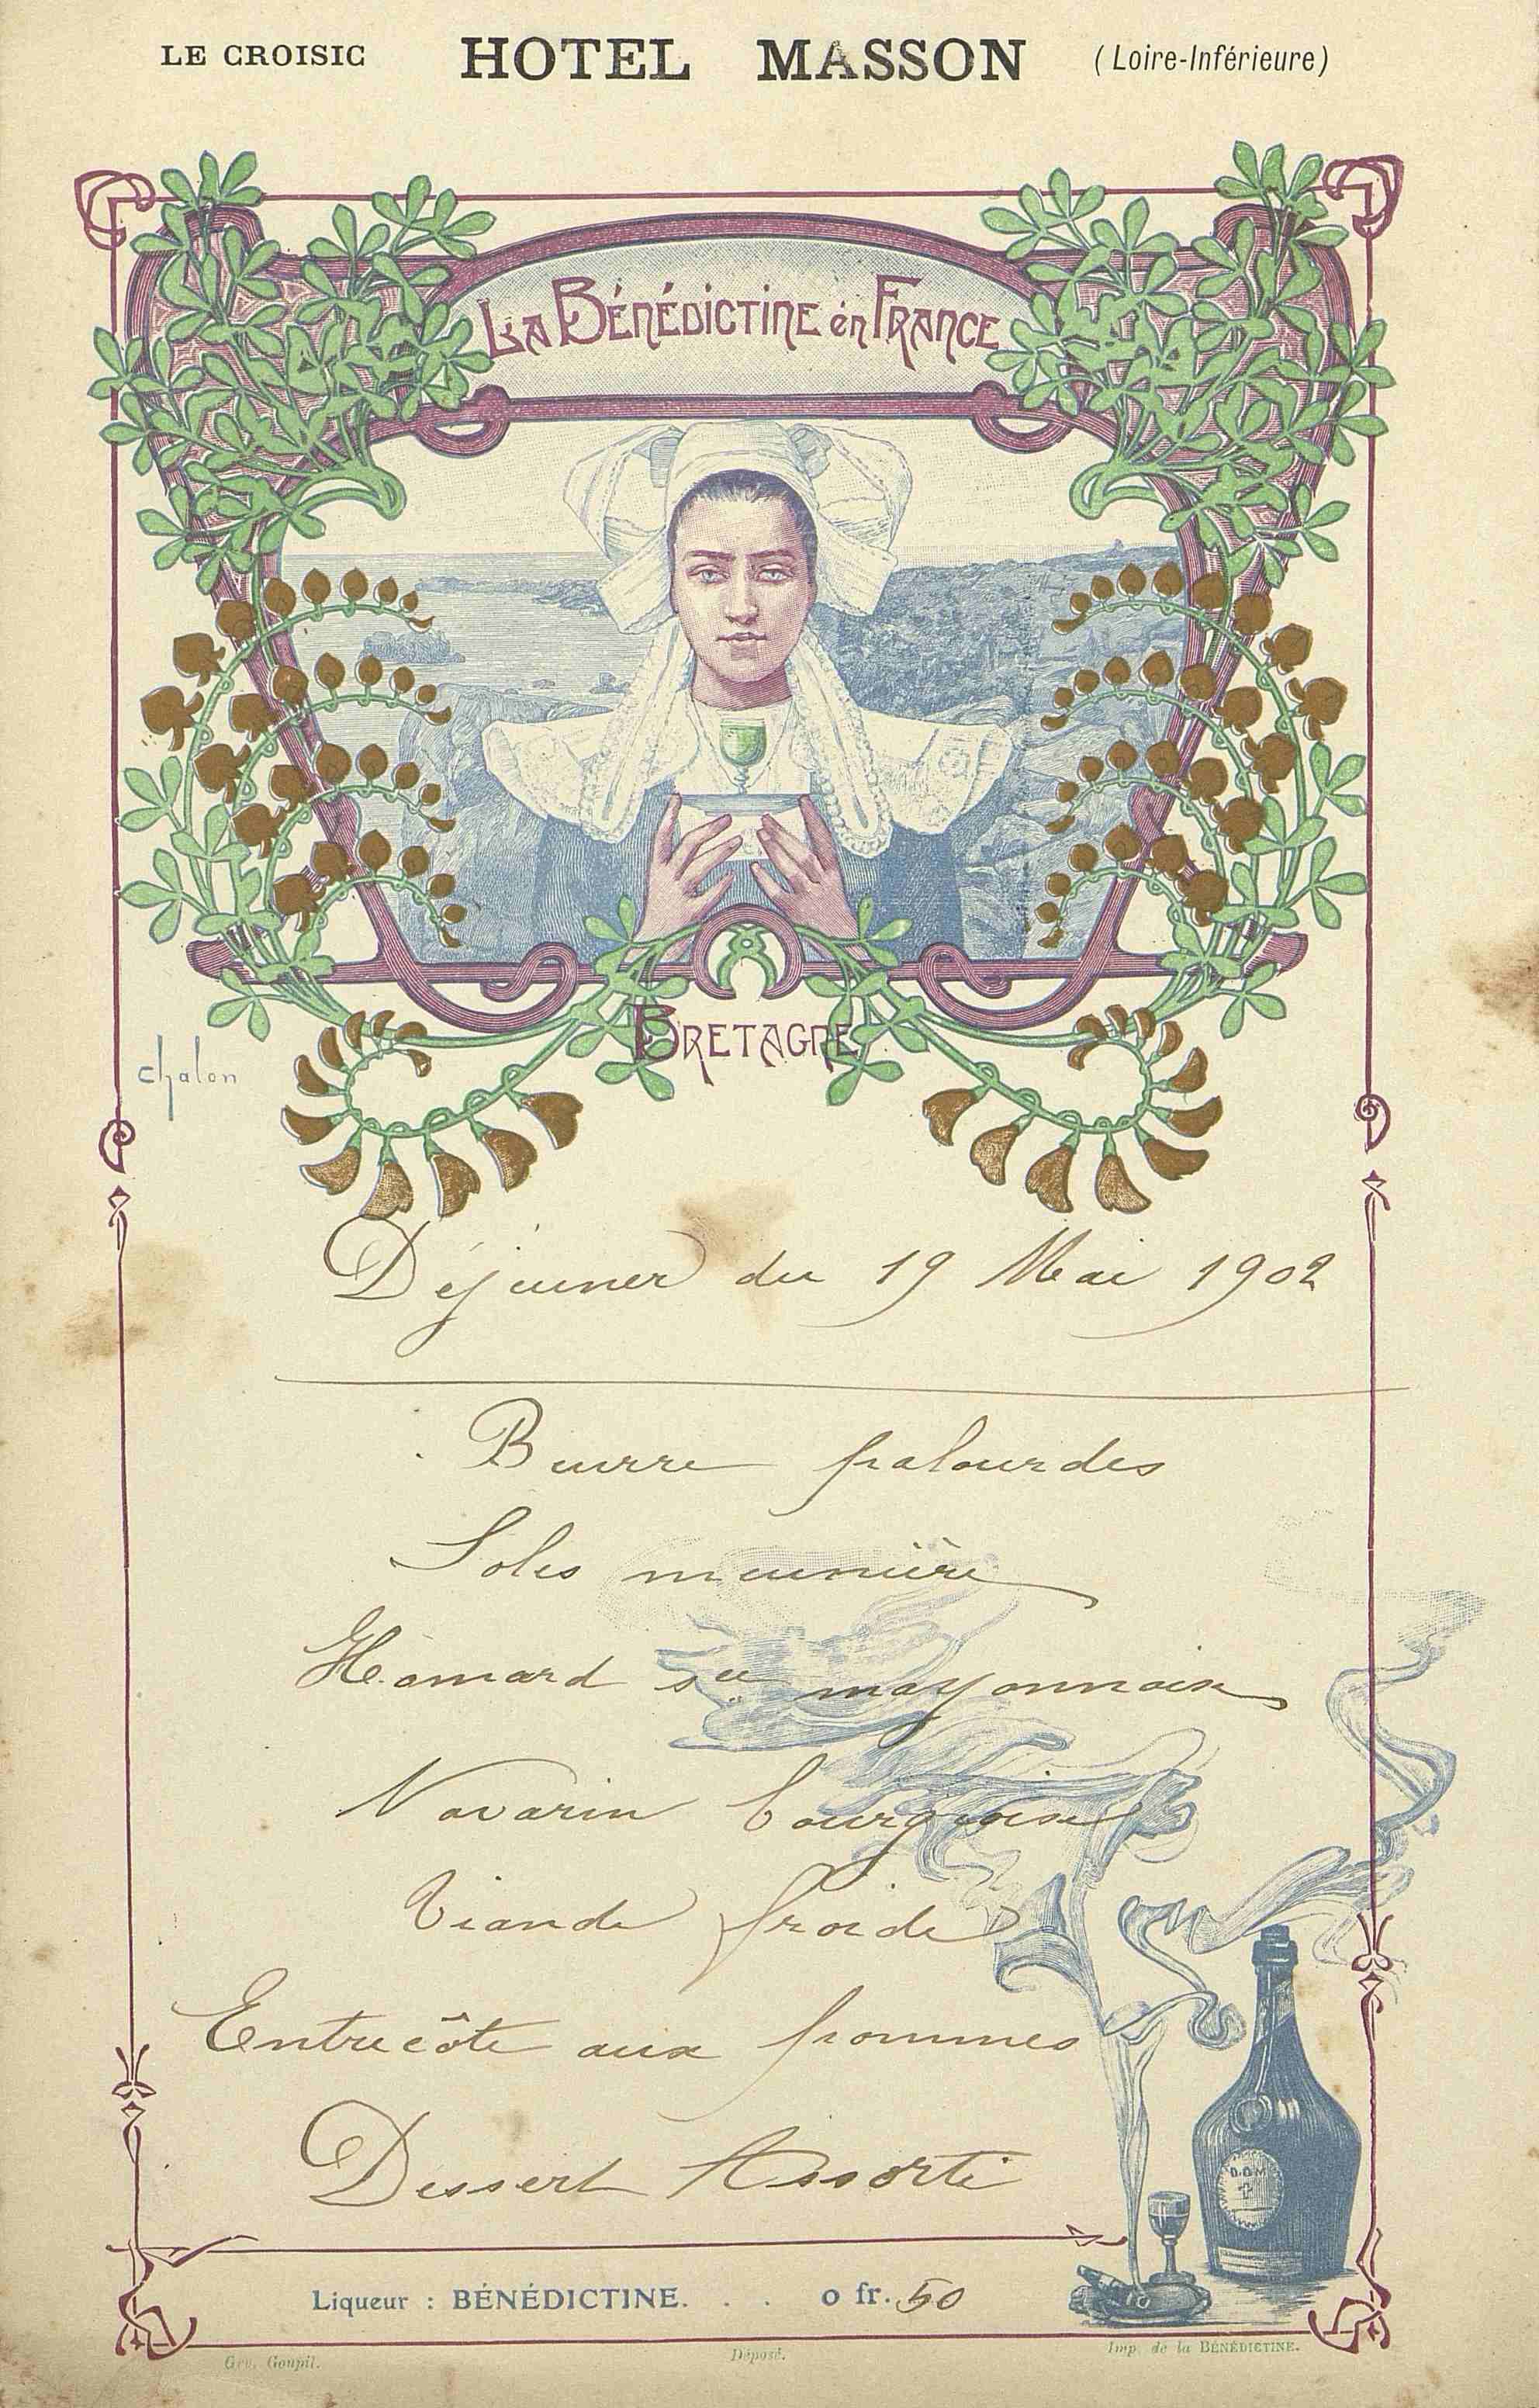 LE CROISIC HOTEL MASSON (Loire-Inférieure)
LA BÉNÉDICTINE en FRANCE
BRETAGNE
chalon
Déjeuner du 19 Mai 1902
Beurre palourdes
Soles meunière
Homard sce mayonnaise
Navarin bourgeoise
Viande froide
Entrecôte aux pommes
Dessert Assorti
D.O.M
Liqueur : BÉNÉDICTINE. . . o fr. 50
Grv. Goupil. Déposé. Imp. de la BÉNÉDICTINE.